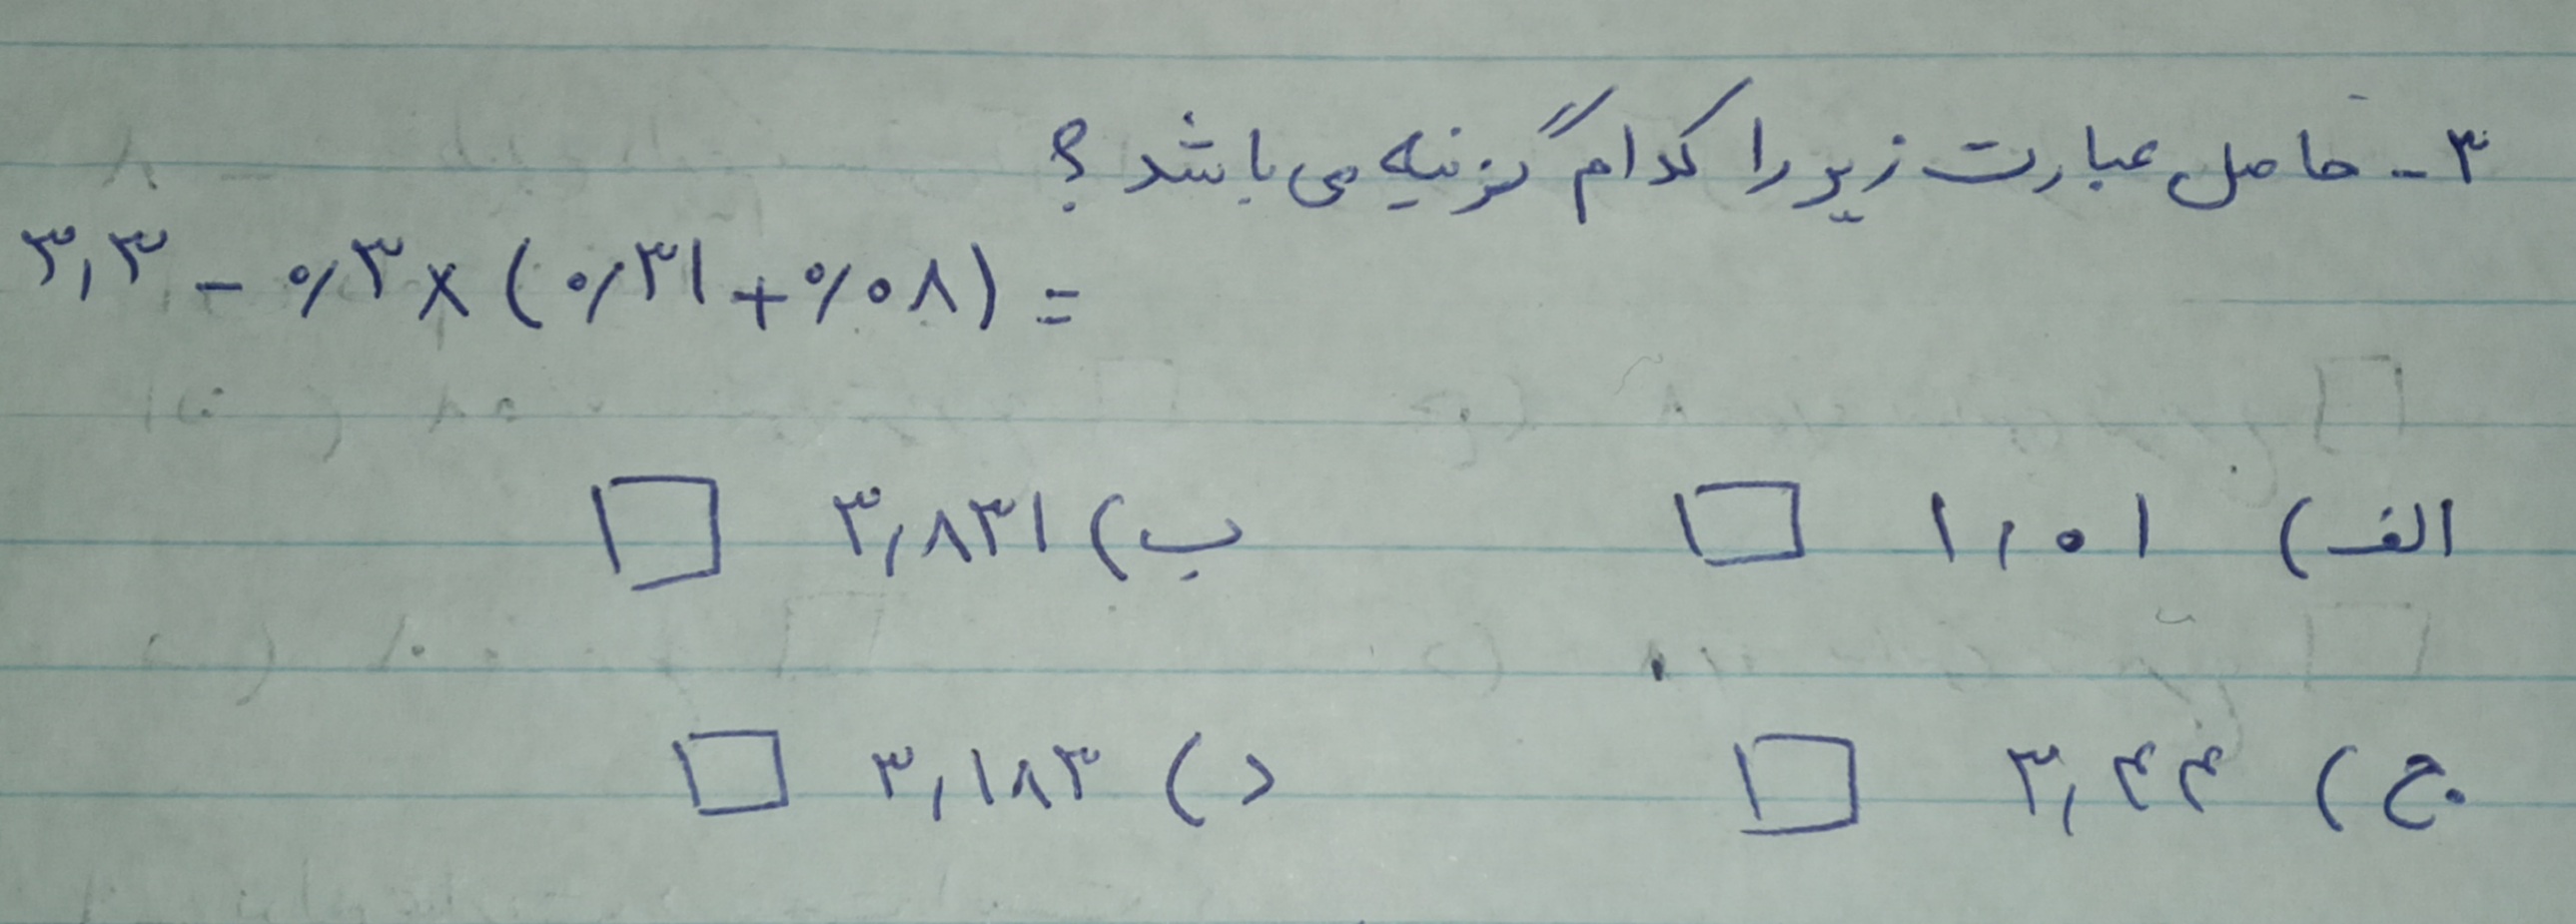 ۳- حاصل عبارت زیر را کدام گزینه می باشد؟
۳,۳ - ۰/۳ × (۰/۳۱ + ۰/۰۸) =
الف) ۱,۰۱ □ ب) ۳,۸۳۱ □
ج) ۳,۴۴ □ د) ۳,۱۸۳ □